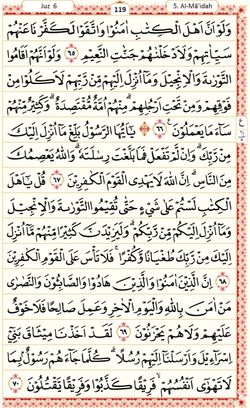 Juz 6 119 5. Al-Mā'idah
وَلَوْ اَنَّ اَهْلَ الْكِتٰبِ اٰمَنُوْا وَاتَّقَوْا لَكَفَّرْنَا عَنْهُمْ
سَيِّاٰتِهِمْ وَلَاَدْخَلْنٰهُمْ جَنّٰتِ النَّعِيْمِ ﴿٦٥﴾ وَلَوْ اَنَّهُمْ اَقَامُوا
التَّوْرٰىةَ وَالْاِنْجِيْلَ وَمَآ اُنْزِلَ اِلَيْهِمْ مِّنْ رَّبِّهِمْ لَاَكَلُوْا مِنْ
فَوْقِهِمْ وَمِنْ تَحْتِ اَرْجُلِهِمْ ۗ مِنْهُمْ اُمَّةٌ مُّقْتَصِدَةٌ ۗ وَكَثِيْرٌ مِّنْهُمْ
سَآءَ مَا يَعْمَلُوْنَ ﴿٦٦﴾ يٰٓاَيُّهَا الرَّسُوْلُ بَلِّغْ مَآ اُنْزِلَ اِلَيْكَ
مِنْ رَّبِّكَ ۗ وَاِنْ لَّمْ تَفْعَلْ فَمَا بَلَّغْتَ رِسٰلَتَهٗ ۗ وَاللّٰهُ يَعْصِمُكَ
مِنَ النَّاسِ ۗ اِنَّ اللّٰهَ لَا يَهْدِى الْقَوْمَ الْكٰفِرِيْنَ ﴿٦٧﴾ قُلْ يٰٓاَهْلَ
الْكِتٰبِ لَسْتُمْ عَلٰى شَيْءٍ حَتّٰى تُقِيْمُوا التَّوْرٰىةَ وَالْاِنْجِيْلَ
وَمَآ اُنْزِلَ اِلَيْكُمْ مِّنْ رَّبِّكُمْ ۗ وَلَيَزِيْدَنَّ كَثِيْرًا مِّنْهُمْ مَّآ اُنْزِلَ
اِلَيْكَ مِنْ رَّبِّكَ طُغْيَانًا وَّكُفْرًا ۚ فَلَا تَأْسَ عَلَى الْقَوْمِ الْكٰفِرِيْنَ
﴿٦٨﴾ اِنَّ الَّذِيْنَ اٰمَنُوْا وَالَّذِيْنَ هَادُوْا وَالصَّابِـُٔوْنَ وَالنَّصٰرٰى
مَنْ اٰمَنَ بِاللّٰهِ وَالْيَوْمِ الْاٰخِرِ وَعَمِلَ صَالِحًا فَلَا خَوْفٌ
عَلَيْهِمْ وَلَا هُمْ يَحْزَنُوْنَ ﴿٦٩﴾ لَقَدْ اَخَذْنَا مِيْثَاقَ بَنِيْٓ
اِسْرَآءِيْلَ وَاَرْسَلْنَآ اِلَيْهِمْ رُسُلًا ۗ كُلَّمَا جَآءَهُمْ رَسُوْلٌۢ بِمَا
لَا تَهْوٰٓى اَنْفُسُهُمْ ۙ فَرِيْقًا كَذَّبُوْا وَفَرِيْقًا يَّقْتُلُوْنَ ﴿٧٠﴾